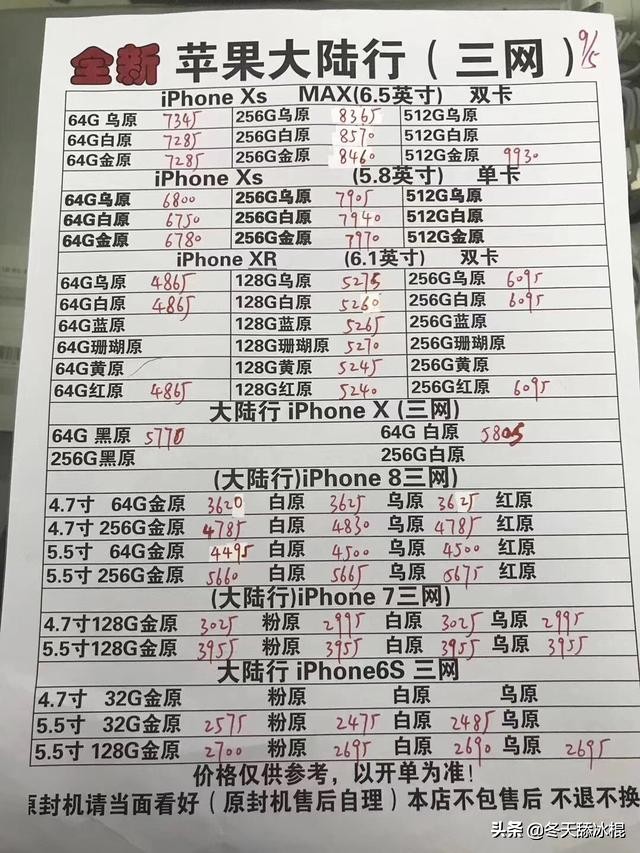 全新 苹果大陆行（三网） 9/5
iPhone Xs MAX(6.5英寸) 双卡
64G 乌原 7345 256G乌原 8365 512G乌原
64G白原 7285 256G白原 8570 512G白原
64G金原 7285 256G金原 8460 512G金原 9930
iPhone Xs (5.8英寸) 单卡
64G乌原 6800 256G乌原 7905 512G乌原
64G白原 6750 256G白原 7940 512G白原
64G金原 6780 256G金原 7970 512G金原
iPhone XR (6.1英寸) 双卡
64G乌原 4865 128G乌原 5275 256G乌原 6095
64G白原 4865 128G白原 5260 256G白原 6095
64G蓝原 128G蓝原 5265 256G蓝原
64G珊瑚原 128G珊瑚原 5270 256G珊瑚原
64G黄原 128G黄原 5245 256G黄原
64G红原 4865 128G红原 5240 256G红原 6095
大陆行 iPhone X (三网)
64G 黑原 5770 64G 白原 5805
256G黑原 256G白原
(大陆行)iPhone 8三网)
4.7寸 64G金原 3620 白原 3625 乌原 3625 红原
4.7寸 256G金原 4785 白原 4830 乌原 4785 红原
5.5寸 64G金原 4495 白原 4500 乌原 4500 红原
5.5寸 256G金原 5660 白原 5665 乌原 5675 红原
(大陆行)iPhone 7三网)
4.7寸128G金原 3025 粉原 2995 白原 3025 乌原 2995
5.5寸128G金原 3955 粉原 3955 白原 3955 乌原 3955
大陆行 iPhone6S 三网
4.7寸 32G金原 粉原 白原 乌原
5.5寸 32G金原 2575 粉原 2475 白原 2485 乌原
5.5寸 128G金原 2700 粉原 2695 白原 2690 乌原 2695
价格仅供参考，以开单为准！
原封机请当面看好（原封机售后自理）本店不包售后 不退不换
头条 @冬天舔冰棍